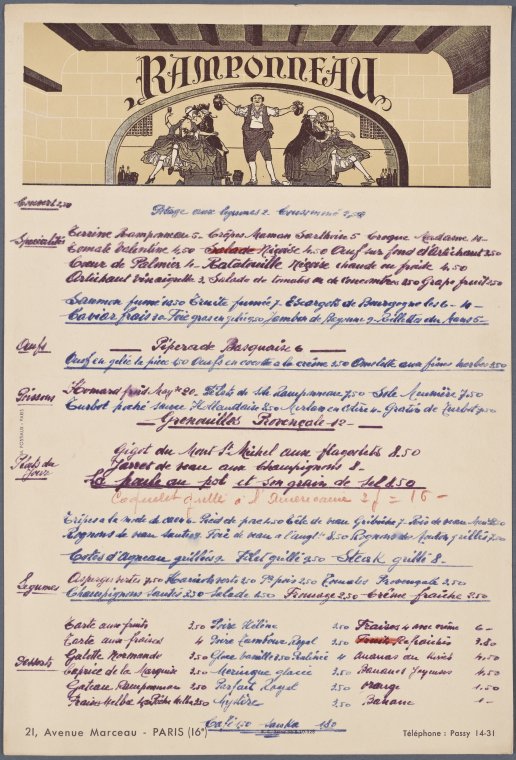 RAMPONNEAU
Couvert 2,50
Potage aux legumes 2. Consommé 2,50
Spécialités
Terrine Ramponneau 5 - Crêpes Maman 5 - Croque Madame 10 -
Tomate Valentine 4,50 Salade Niçoise 4,50 Oeuf sur fond d'Artichaut 3,50
Coeur de Palmier 4 - Ratatouille Niçoise chaude ou froide 4,50
Artichaut vinaigrette 3. Salade de tomates ou de concombres 2,50 Grape fruit 2,50
Saumon fumé 10,50 Truite fumée 7. Escargots de Bourgogne les 6 - 4 -
Caviar frais 20 Foie gras en gelée Jambon de Bayonne 9. Rillettes du Mans 5 -
Oeufs
Pipérade Basquaise 6
Oeuf en gelée la pièce 2,50 Oeufs en cocotte à la crème 2,50 Omelette aux fines herbes 3,50
Poissons
Homard frais May. 20. Filets de sole Ramponneau 7,50 Sole Meunière 7,50
Turbot poché sauce Hollandaise Merlan en Gratin de Turbot 7,50
Grenouilles Provençale 12 -
Plats du Jour
Gigot du Mont St Michel aux flageolets 8.50
Jarret de veau aux champignons 8 -
La poule au pot et son grain de sel 8.50
Coquelet grillé à l'Américaine
Tripes à la mode de Caen 6 Pied de porc Tête de veau Gribiche 7 Foie de veau
Rognons de veau Foie de veau à l'angl. 8,50 Rognons de Mouton grillés 7,50
Cotes d'agneau grillées Filet grillé 9,50 Steak grillé 8 -
Légumes
Asperges vertes 7,50 Haricots verts 2,50 Pts pois 2,50 Tomates Provençale 2,50
Champignons sautés 3,50 Salade 2,50 Fromage 2,50 Crème fraîche 2,50
Desserts
Tarte aux fruits 3,50 Poire Hélène 3,50 Fraises à une crème 6 -
Tarte aux fraises 4 Poire Cambour Royal 3,50 Rafraichis 3.50
Galette Normande 3,50 Glace vanille 2,50 Pralinée 4 Ananas au kirsch 4,50
Caprice de la Marquise 3,50 Meringue glacée 3,50 Bananes 4,50
Gateau Ramponneau 3,50 Parfait Royal 3,50 Orange 1.50
Fraises Melba Pêche Melba Mystère 3,50 Banane 1 -
Café 1,50 Sanka 1,80
21, Avenue Marceau - PARIS (16e)
Téléphone : Passy 14-31